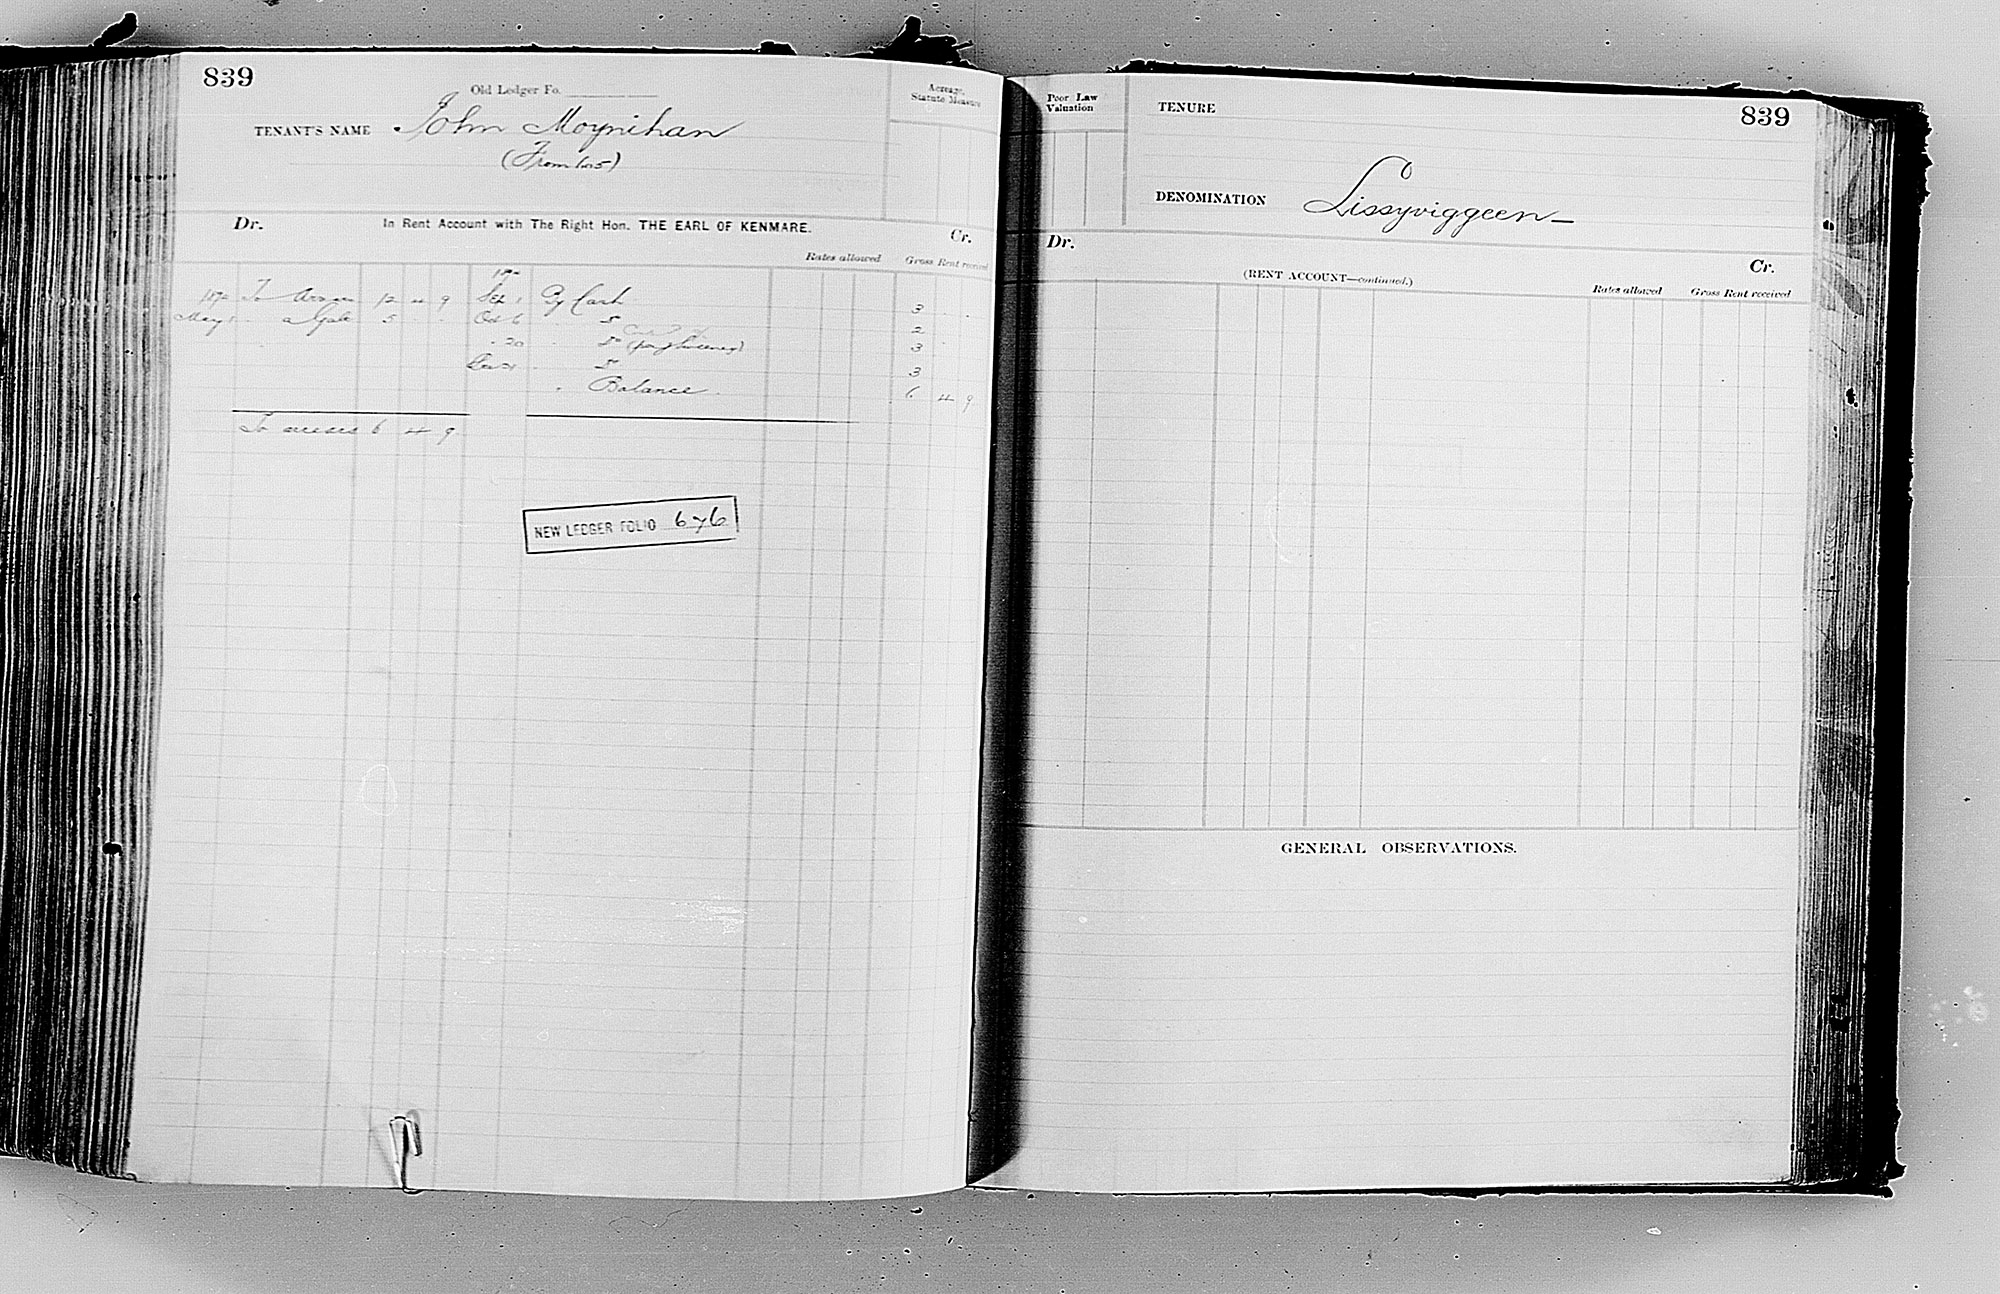 839
Old Ledger Fo.
TENANT'S NAME John Moynihan
Acreage, Statute Measure
Dr. In Rent Account with The Right Hon. THE EARL OF KENMARE. Cr.
Rates allowed Gross Rent received
To 12 4 9 Sep 1 By Cash 3
May 1 a Gale 5 Oct 6 2
20 3
3
Balance 6 4 9
To arrears 6 4 9
NEW LEDGER FOLIO 676
Poor Law Valuation
TENURE
839
DENOMINATION Lissyviggeen
Dr. Cr.
(RENT ACCOUNT—continued.)
Rates allowed Gross Rent received
GENERAL OBSERVATIONS.